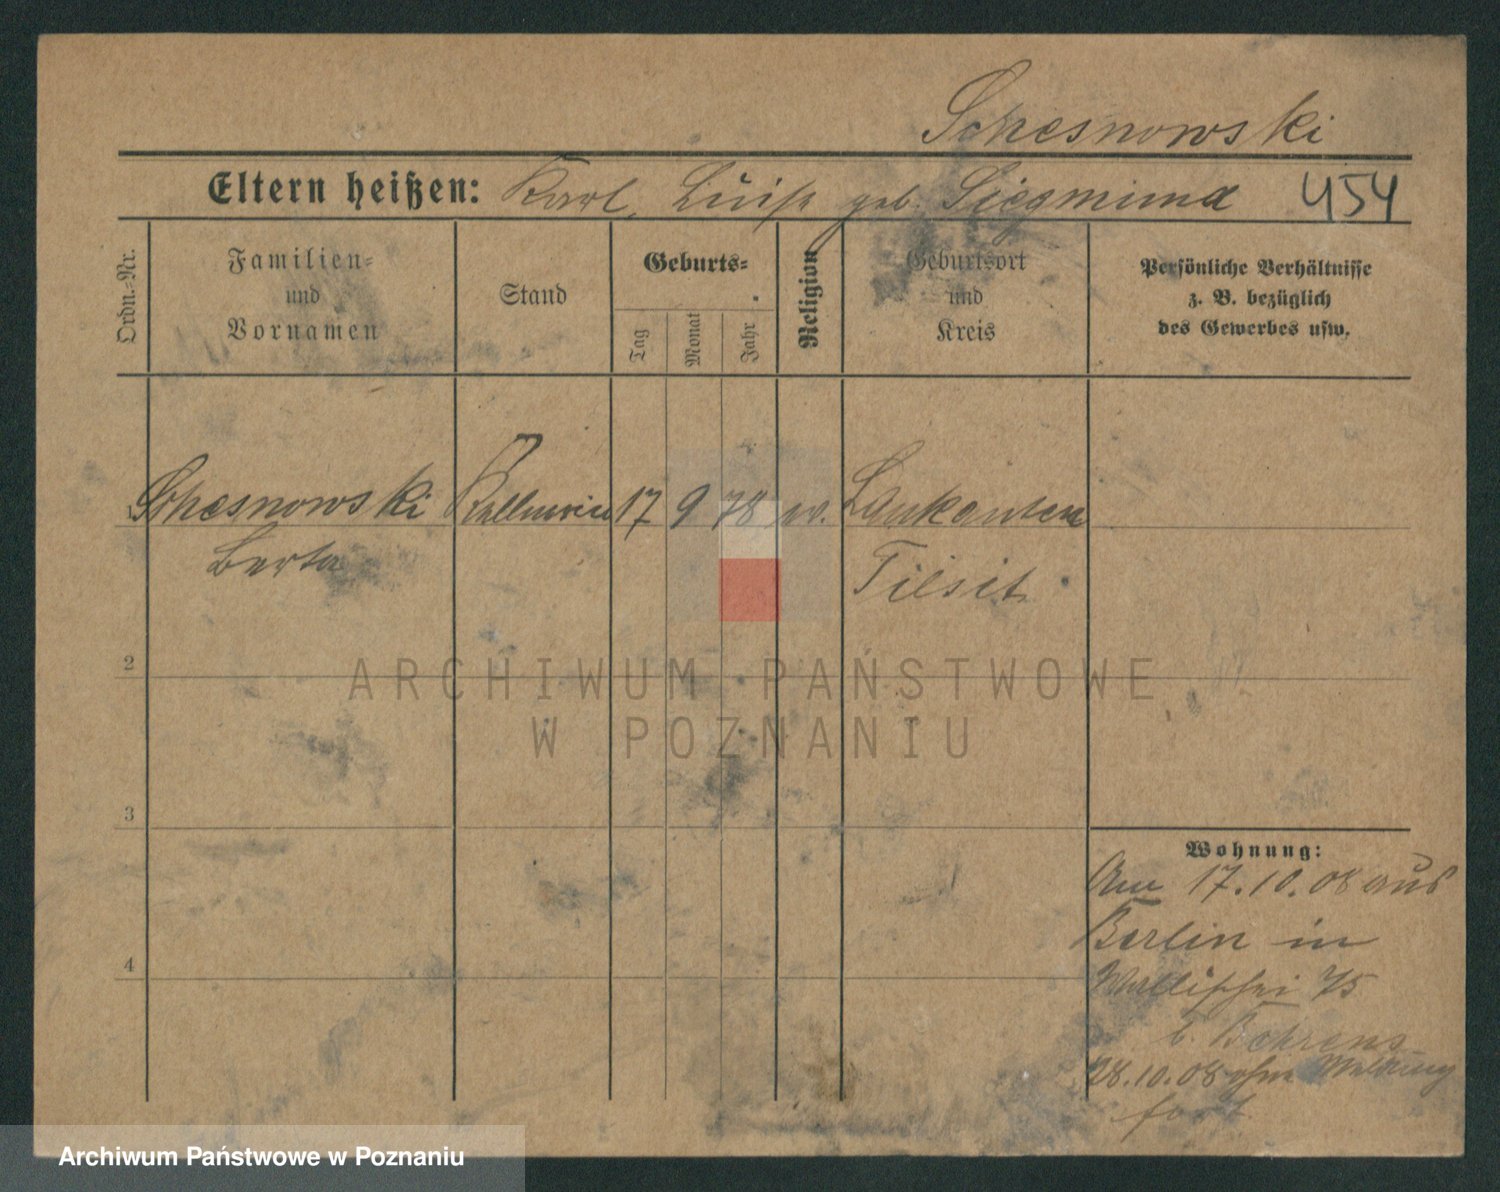 Schesnowski
Eltern heißen: Karl, Luise geb. Siegmund 454
Ordn.-Nr.
Familien-
und
Vornamen
Stand
Geburts-
Tag
Monat
Jahr
Religion
Geburtsort
und
Kreis
Persönliche Verhältnisse
z. B. bezüglich
des Gewerbes usw.
1 Schesnowski Kellnerin 17 9 78 ev. Laukanten
Berta Tilsit
2
3
4
Wohnung:
Am 17.10.08 aus
Berlin in
Wallischei 75
b. Behrens
28.10.08 ohne Meldung
fort
ARCHIWUM PAŃSTWOWE
W POZNANIU
Archiwum Państwowe w Poznaniu